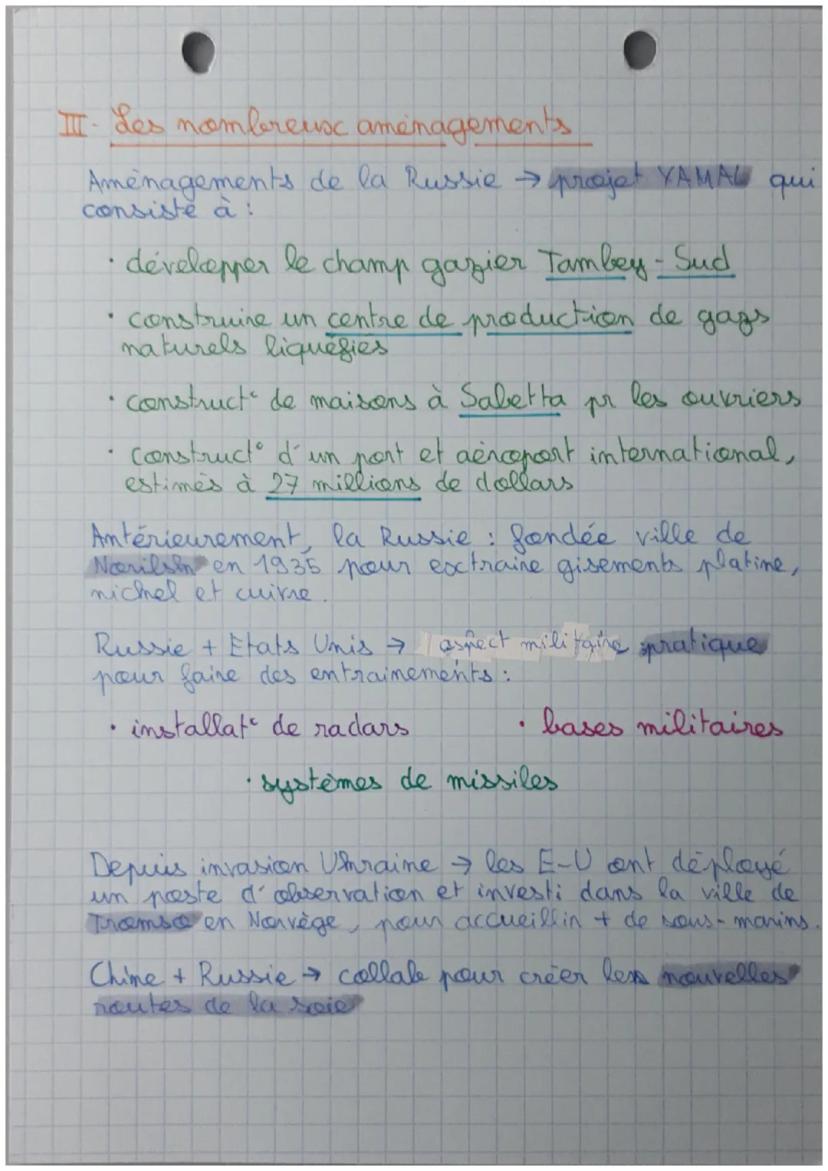 III- Les nombreux aménagements
Aménagements de la Russie → projet YAMAL qui
consiste à :
• développer le champ gazier Tambey-Sud
• construire un centre de production de gazs
naturels liquéfiés
• construct° de maisons à Sabetta pr les ouvriers
• construct° d'un port et aéroport international,
estimés à 27 millions de dollars
Antérieurement, la Russie : fondée ville de
Norilsk en 1935 pour extraire gisements platine,
nickel et cuivre.
Russie + Etats Unis → aspect militaire pratique
pour faire des entrainements :
• installat° de radars • bases militaires
• systèmes de missiles
Depuis invasion Ukraine → les E-U ont déployé
un poste d'observation et investi dans la ville de
Tromso en Norvège, pour accueillir + de sous-marins.
Chine + Russie → collab pour créer les nouvelles
routes de la soie